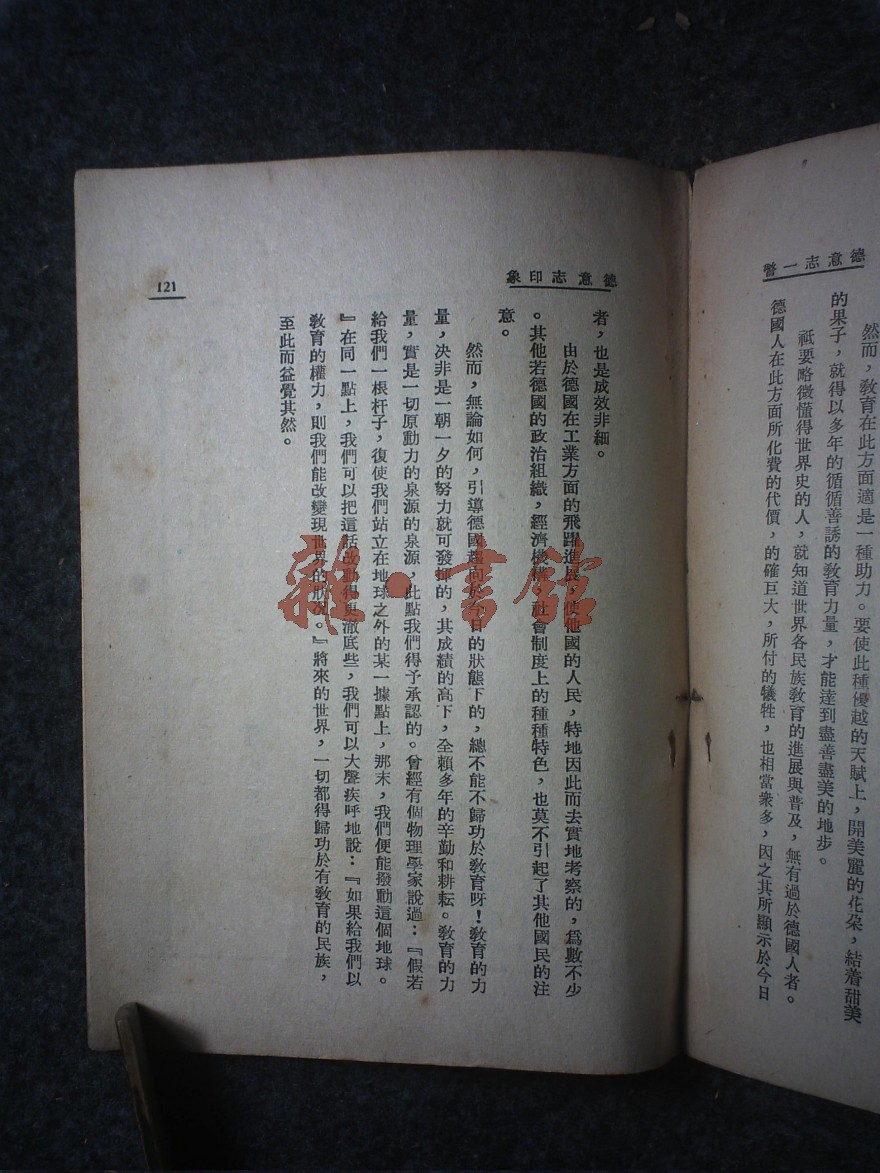 德意志一瞥
然而，敎育在此方面適是一種助力。要使此種優越的天賦上，開美麗的花朵，結着甜美
的果子，就得以多年的循循善誘的敎育力量，才能達到盡善盡美的地步。
祇要略微懂得世界史的人，就知道世界各民族敎育的進展與普及，無有過於德國人者。
德國人在此方面所化費的代價，的確巨大，所付的犧牲，也相當衆多，因之其所顯示於今日
德意志印象
者，也是成效非細。
由於德國在工業方面的飛躍進展，使他國的人民，特地因此而去實地考察的，爲數不少
。其他若德國的政治組織，經濟機構，社會制度上的種種特色，也莫不引起了其他國民的注
意。
然而，無論如何，引導德國趨向於今日的狀態下的，總不能不歸功於敎育呀！敎育的力
量，決非是一朝一夕的努力就可發揮的，其成績的高下，全賴多年的辛勤和耕耘。敎育的力
量，實是一切原動力的泉源的泉源，此點我們得予承認的。曾經有個物理學家說過：『假若
給我們一根杆子，復使我們站立在地球之外的某一據點上，那末，我們便能撥動這個地球。
』在同一點上，我們可以把這話改動得更澈底些，我們可以大聲疾呼地說：『如果給我們以
敎育的權力，則我們能改變現世界的狀況。』將來的世界，一切都得歸功於有敎育的民族，
至此而益覺其然。
121
雜·書館